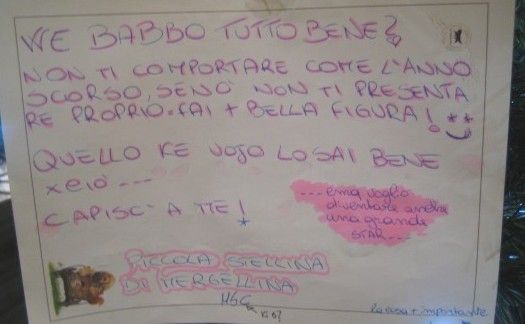 WE BABBO TUTTO BENE?
NON TI COMPORTARE COME L'ANNO
SCORSO, SENÒ NON TI PRESENTA
RE PROPRIO. FAI + BELLA FIGURA!
QUELLO KE VOJO LO SAI BENE
xciò ---
CAPISC' A ME!
--- ema voglio
diventare anch'io
una grande
STAR ---
PICCOLA STELLINA
DI MERGELLINA
la cosa + importante